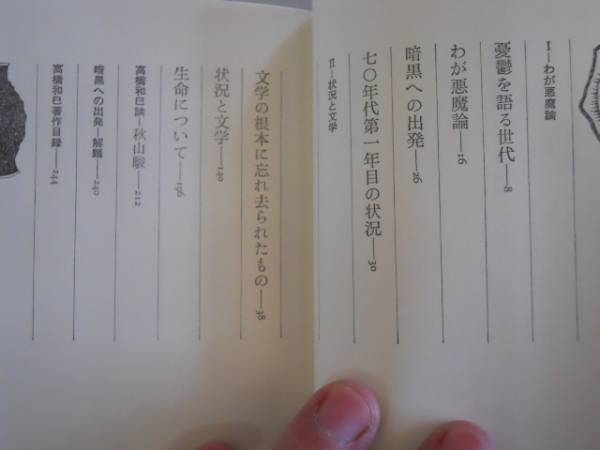 I—わが悪魔論
憂鬱を語る世代—8
わが悪魔論—16
暗黒への出発—26
七〇年代第一年目の状況—30
II—状況と文学
文学の根本に忘れ去られたもの—38
状況と文学—140
生命について—196
高橋和巳論—秋山駿—212
暗黒への出発—解題—240
高橋和巳著作目録—244